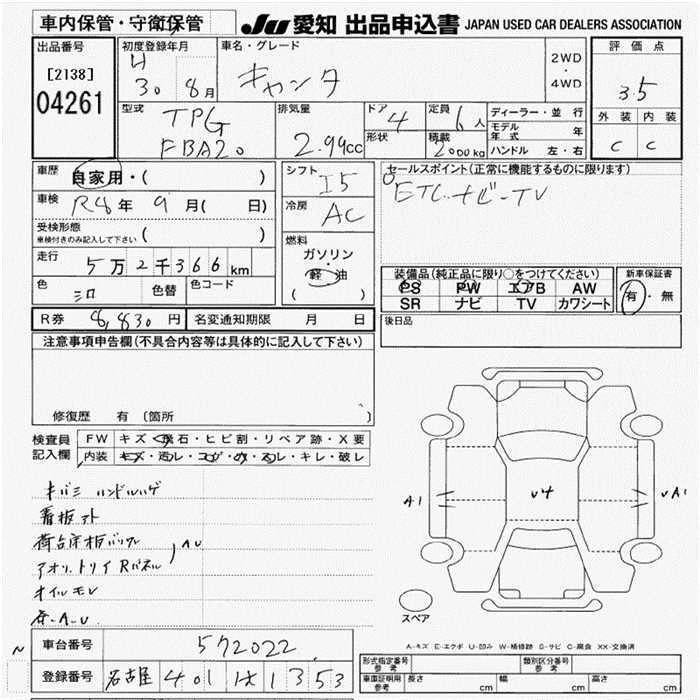 車内保管・守衛保管
JU 愛知 出品申込書 JAPAN USED CAR DEALERS ASSOCIATION
出品番号
[2138]
04261
初度登録年月
H
30 8月
車名・グレード
キャンタ
2WD
・
4WD
評価点
3.5
外装 内装
C C
型式
TPG
FBA20
排気量
2.99cc
ドア
4
形状
定員
6人
積載
2000kg
ディーラー・並行
モデル年式 年
ハンドル 左・右
車歴
自家用・( )
車検
R8年 9月( 日)
受検形態
車検付きのみ記入して下さい ( )
走行
5万2千366km
色
シロ
色替
色コード
シフト
I5
冷房
AC
燃料
ガソリン
・
軽油
( )
セールスポイント(正常に機能するものに限ります)
ETC ナビ-TV
装備品(純正品に限り○をつけてください)
PS PW エアB AW
SR ナビ TV カワシート
新車保証書
有・無
R券 8,830円
名変通知期限 月 日
後日品
注意事項申告欄(不具合内容等は具体的に記入して下さい)
修復歴 有 (箇所 )
検査員
記入欄
FW キズ・飛石・ヒビ割・リペア跡・X要
内装 キズ・汚レ・コゲ・穴・スレ・キレ・破レ
キバミ ハンドルハゲ
看板アト
荷台床板
アオリ、トリイ Rパネル
AU
オイルモレ
A.U
A1
U4
UA1
スペア
A-キズ E-エクボ U-凹み W-補修跡 S-サビ C-腐食 XX-交換済
車台番号
572022
登録番号
名古屋 401 1353
形式指定番号
参考
類別区分番号
参考
車庫証明用
参考
長さ cm
幅 cm
高さ cm